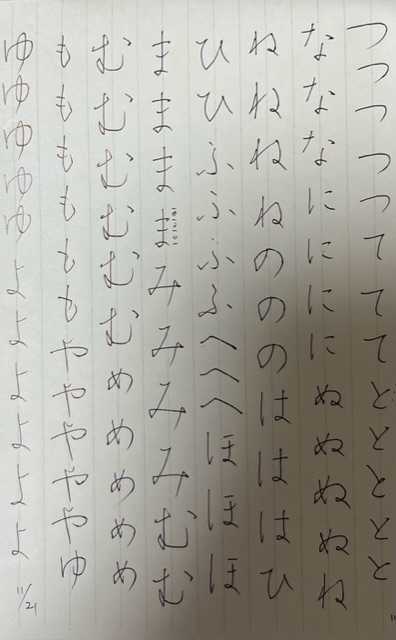 つつつつつてててととととと
なななににににぬぬぬぬね
ねねねねのののはははひ
ひひふふふふへへへほほほ
ままままみみみみむむ
むむむむむむめめめめめ
ももももももやややややゆ
ゆゆゆゆゆよよよよよよ
11/21